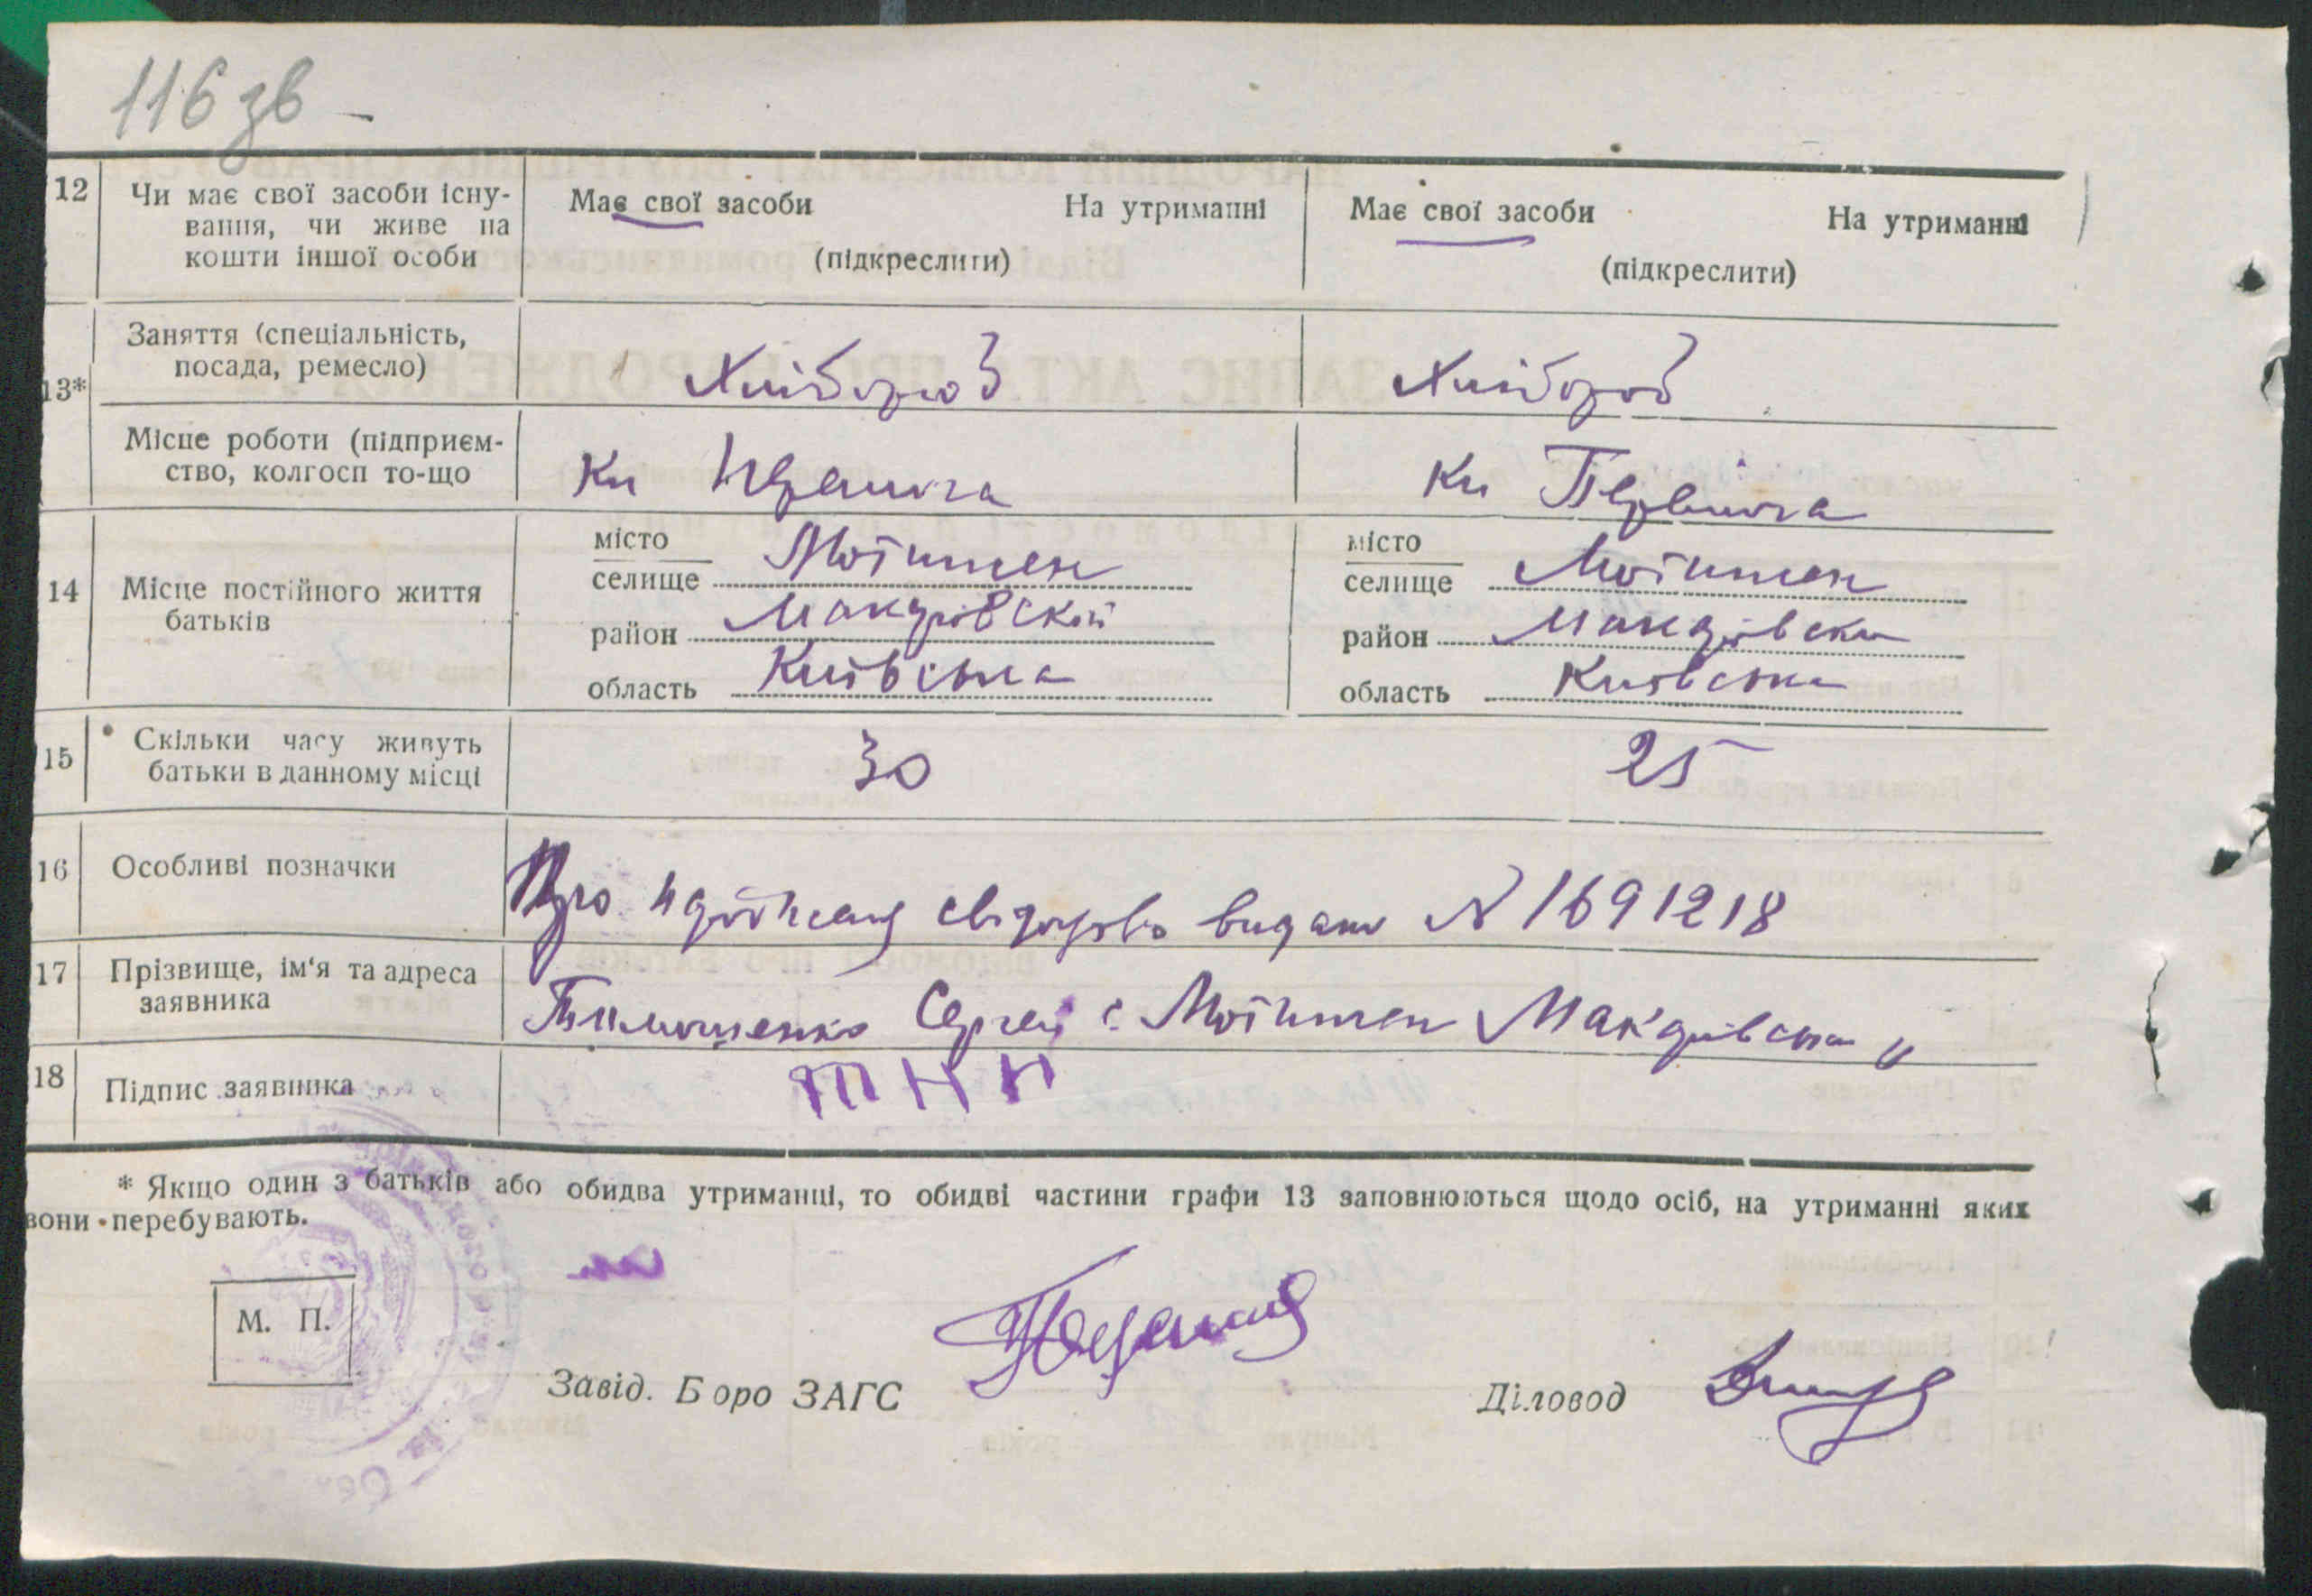 116 зв
12 Чи має свої засоби існу- Має свої засоби На утриманні Має свої засоби На утриманні
вання, чи живе на
кошти іншої особи (підкреслити) (підкреслити)
13* Заняття (спеціальність, Хлібороб Хлібороб
посада, ремесло)
Місце роботи (підприєм- Кп Кп
ство, колгосп то-що
14 Місце постійного життя місто місто
батьків селище Мотижен селище Мотижен
район Макарівский район Макарівски
область Київська область Київська
15 Скільки часу живуть 30 25
батьки в данному місці
16 Особливі позначки Про свідоцтво видано № 1691218
17 Прізвище, ім'я та адреса Тимошенко Сергей с. Мотижен Макарівськи
заявника
18 Підпис заявника
* Якщо один з батьків або обидва утриманці, то обидві частини графи 13 заповнюються щодо осіб, на утриманні яких
вони перебувають.
М. П.
Завід. Б оро ЗАГС Діловод